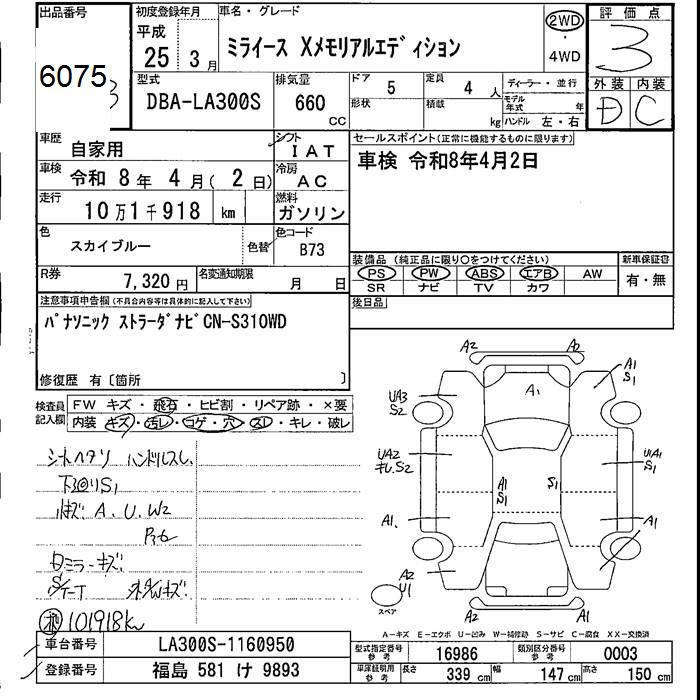 出品番号 初度登録年月 車名・グレード 評価点
平成 2WD
6075 25 3月 ミライース Xメモリアルエディション ・ 3
4WD
型式 排気量 ドア 5 定員 4 人 ディーラー・並行 外装 内装
DBA-LA300S 660 CC 形状 積載 kg モデル年式 年 D C
ハンドル 左・右
車歴 自家用 シフト IAT セールスポイント(正常に機能するものに限ります)
車検 令和 8年 4月(2日) 冷房 AC 車検 令和8年4月2日
走行 10万1千918 km 燃料 ガソリン
色 スカイブルー 色替 色コード B73
装備品(純正品に限り○をつけてください) 新車保証書
R券 7,320円 名変通知期限 月 日 PS PW ABS エアB AW 有・無
SR ナビ TV カワ
注意事項申告欄(不具合内容等は具体的に記入して下さい) 後日品
パナソニック ストラーダナビCN-S310WD
修復歴 有〔箇所 〕
検査員記入欄 FW キズ・飛石・ヒビ割・リペア跡・×要
内装 キズ・汚レ・コゲ・穴・スレ・キレ・破レ
シートヘタリ ハンドルスレ
下廻りS1
A、U、W2
ミラーキズ
101918km
A2 A2
A1 A1 S1
UA3 S2
UA2 S2 A1 S1 S1 UA1 S1
A1 A1
A2 U1
スペア
A2 A1
A-キズ E-エクボ U-凹み W-補修跡 S-サビ C-腐食 XX-交換済
車台番号 LA300S-1160950 型式指定番号 参考 16986 類別区分番号 参考 0003
登録番号 福島 581 け 9893 車庫証明用 参考 長さ 339 cm 幅 147 cm 高さ 150 cm